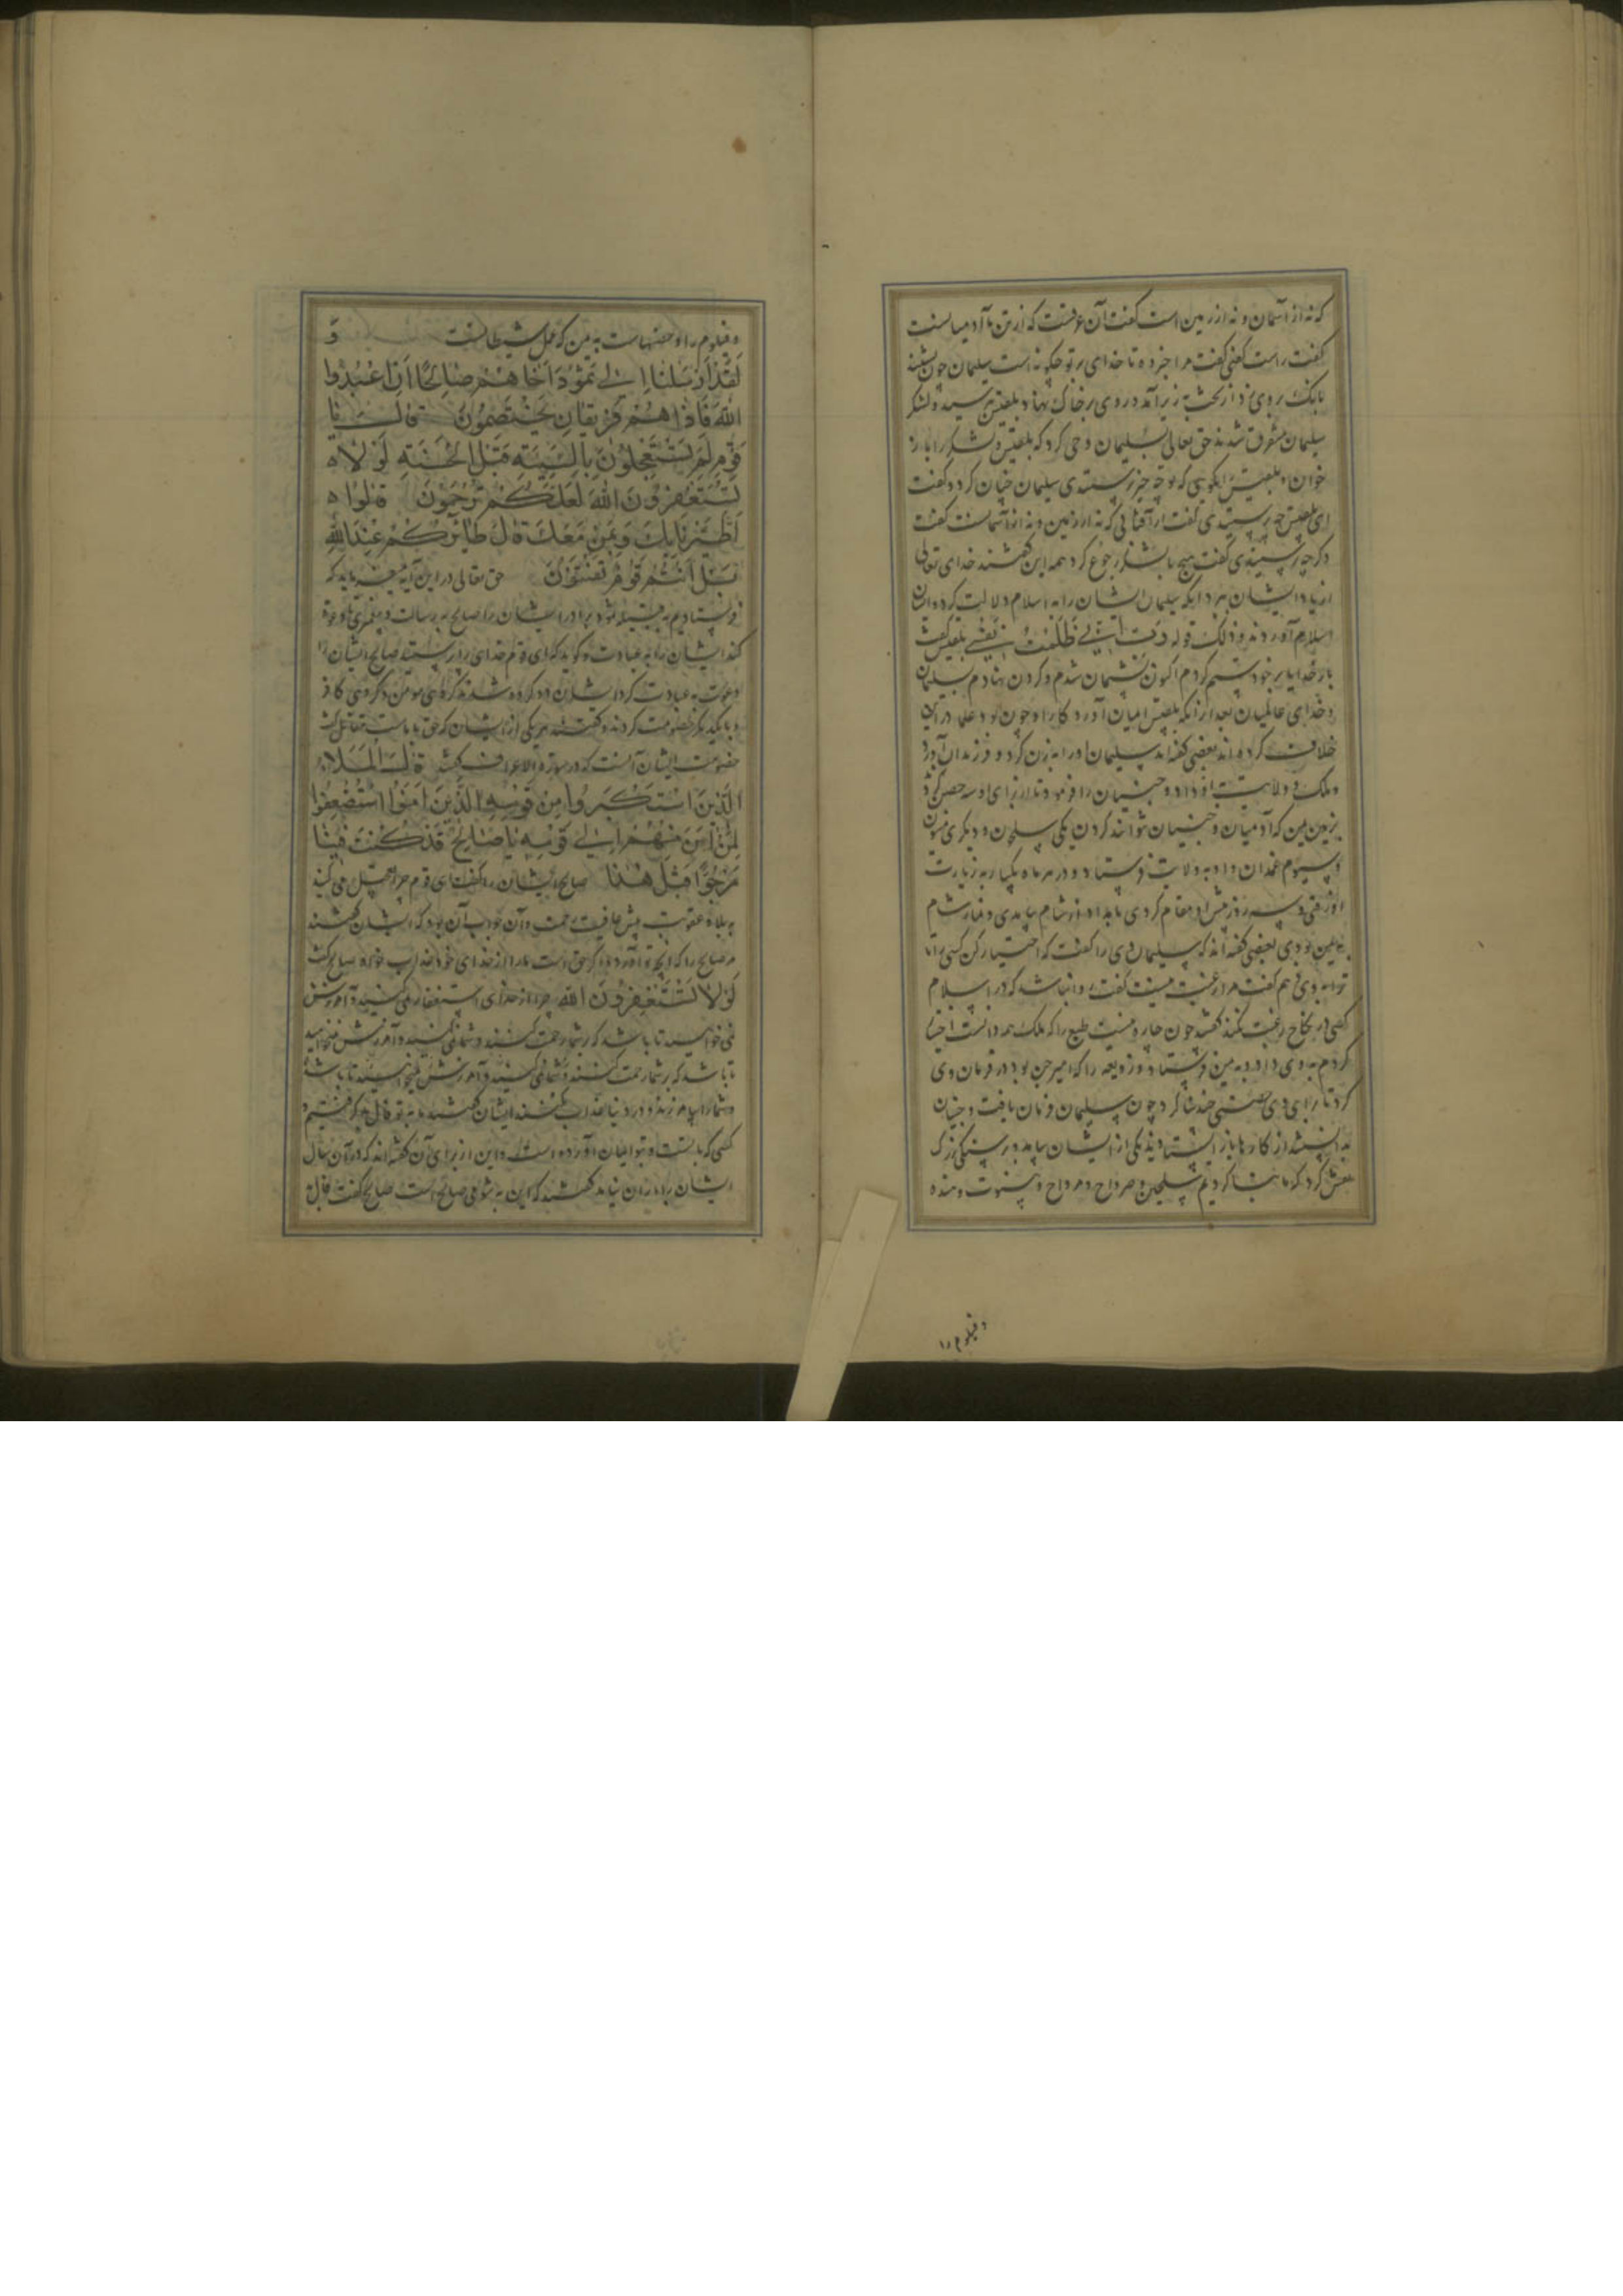 که نه از آسمان و نه از زمین است گفت آن عرقست که از تن آدمیانست
گفت راست گفتی گفت مرا خبر ده تا خدای تو چگونه است سلیمان چون بشنید
بانک بر وی زد از تخت به زیر آمد و روی بر خاک نهاد و بلقیس بترسید و لشکر
سلیمان متفرق شدند حق تعالی به سلیمان وحی کرد که بلقیس و لشکر را باز
خوان و بلقیس را بگوی که تو چه چیز پرسیدی سلیمان چنان کرد و گفت
ای بلقیس چه پرسیدی گفت از آبی که نه از زمین و نه از آسمانست گفت
دگر چه پرسیدی گفت هیچ با لشکر رجوع کرد همه این گفتند خدای تعالی
از یاد ایشان ببرد آنگه سلیمان ایشان را به اسلام دلالت کرد و ایشان
اسلام آوردند و ذلک قوله رب انی ظلمت نفسی بلقیس گفت
بار خدایا بر خود ستم کردم اکنون پشیمان شدم و گردن نهادم سلیمان
و خدای عالمیان بعد از آنکه بلقیس ایمان آورد کار او چون بود علما در این
خلاف کرده اند بعضی گفته اند سلیمان او را به زن کرد و فرزندان آورد
و ملک و ولایت باو داد و جنیان را فرمود تا از برای او سه حصن کرد
بزمین یمن که آدمیان و جنیان نتوانند کردن یکی سلحین و دیگری بینون
و سیوم غمدان و او به ولایت فرستاد و در هر ماه یکبار به زیارت
او رفتی و سه روز پیش او مقام کردی بامداد از شام بیامدی و نماز شام
به یمن بودی بعضی گفته اند که سلیمان وی را گفت که اختیار کن کسی را تا
ترا به وی دهم گفت مرا رغبت نیست گفت روا نباشد که در اسلام
کسی در نکاح رغبت نکند گفت چون چاره نیست تبع را که ملک همدانست اختیار
کردم به وی داد و به یمن فرستاد و زوبعه را که امیر جن بود در فرمان وی
کرد تا برای وی حصنی چند بنا کرد چون سلیمان فرمان یافت و جنیان
بدانستند از کارها باز ایستادند یکی از ایشان بیامد و بر سنگی بزرگ
نقش کرد که ما بنا کردیم سلحین و صرواح و مرواح و بینوت و هنده
و فیلوم را
و فیلوم را و حصنهاست به یمن که عمل شیطانست وَ
لَقَدْ اَرْسَلْنَا اِلٰی ثَمُودَ اَخَاهُمْ صَالِحًا اَنِ اعْبُدُوا
اللّٰهَ فَاِذَا هُمْ فَرِیقَانِ یَخْتَصِمُونَ قَالَ یَا
قَوْمِ لِمَ تَسْتَعْجِلُونَ بِالسَّیِّئَةِ قَبْلَ الْحَسَنَةِ لَوْلَا
تَسْتَغْفِرُونَ اللّٰهَ لَعَلَّکُمْ تُرْحَمُونَ قَالُوا
اطَّیَّرْنَا بِکَ وَبِمَنْ مَعَکَ قَالَ طَائِرُکُمْ عِنْدَ اللّٰهِ
بَلْ اَنْتُمْ قَوْمٌ تُفْتَنُونَ حق تعالی در این آیه میفرماید که
فرستادیم به قبیله ثمود برادر ایشان را صالح به رسالت و پیغمبری تا دعوة
کند ایشان را به عبادت و گوید که ای قوم خدای را پرستید صالح ایشان را
دعوت به عبادت کرد ایشان دو گروه شدند گروهی مومن و گروهی کافر
و با یکدیگر خصومت کردند و گفتند هر یکی از ایشان که حق با ماست مقاتل گفت
خصومت ایشان آنست که در سورة الاعراف گفت قَالَ الْمَلَاُ
الَّذِینَ اسْتَکْبَرُوا مِنْ قَوْمِهِ الَّذِینَ اٰمَنُوا اسْتُضْعِفُوا
لِمَنْ اٰمَنَ مِنْهُمْ اِلٰی قَوْمِهِ یَا صَالِحُ قَدْ کُنْتَ فِینَا
مَرْجُوًّا قَبْلَ هٰذَا صالح ایشان را گفت ای قوم چرا تعجیل می کنید
به بلا و عقوبت پیش عافیت و رحمت و آن جواب آن بود که ایشان گفتند
مر صالح را که آنچه تو آوردهٔ اگر حق است ما را از خدای خود عذاب خواه صالح گفت
لَوْلَا تَسْتَغْفِرُونَ اللّٰهَ چرا از خدای استغفار نمی کنید و آمرزش
نمی خواهید تا باشد که بر شما رحمت کنند و شما نمی کنید و آمرزش نمیخواهید
تا باشد که بر شما رحمت کنند و شما نمی کنید و آمرزش نمیخواهید تا باشد
و شما را بیامرزند و در دنیا عذاب نکنند ایشان گفتند ما به تو فال بد گرفتیم و
کسی که با تست و بتو ایمان آورده است و این از برای آن گفته اند که در آن سال
ایشان را باران نیامد گفتند که این به شومی صالح است صالح گفت فال